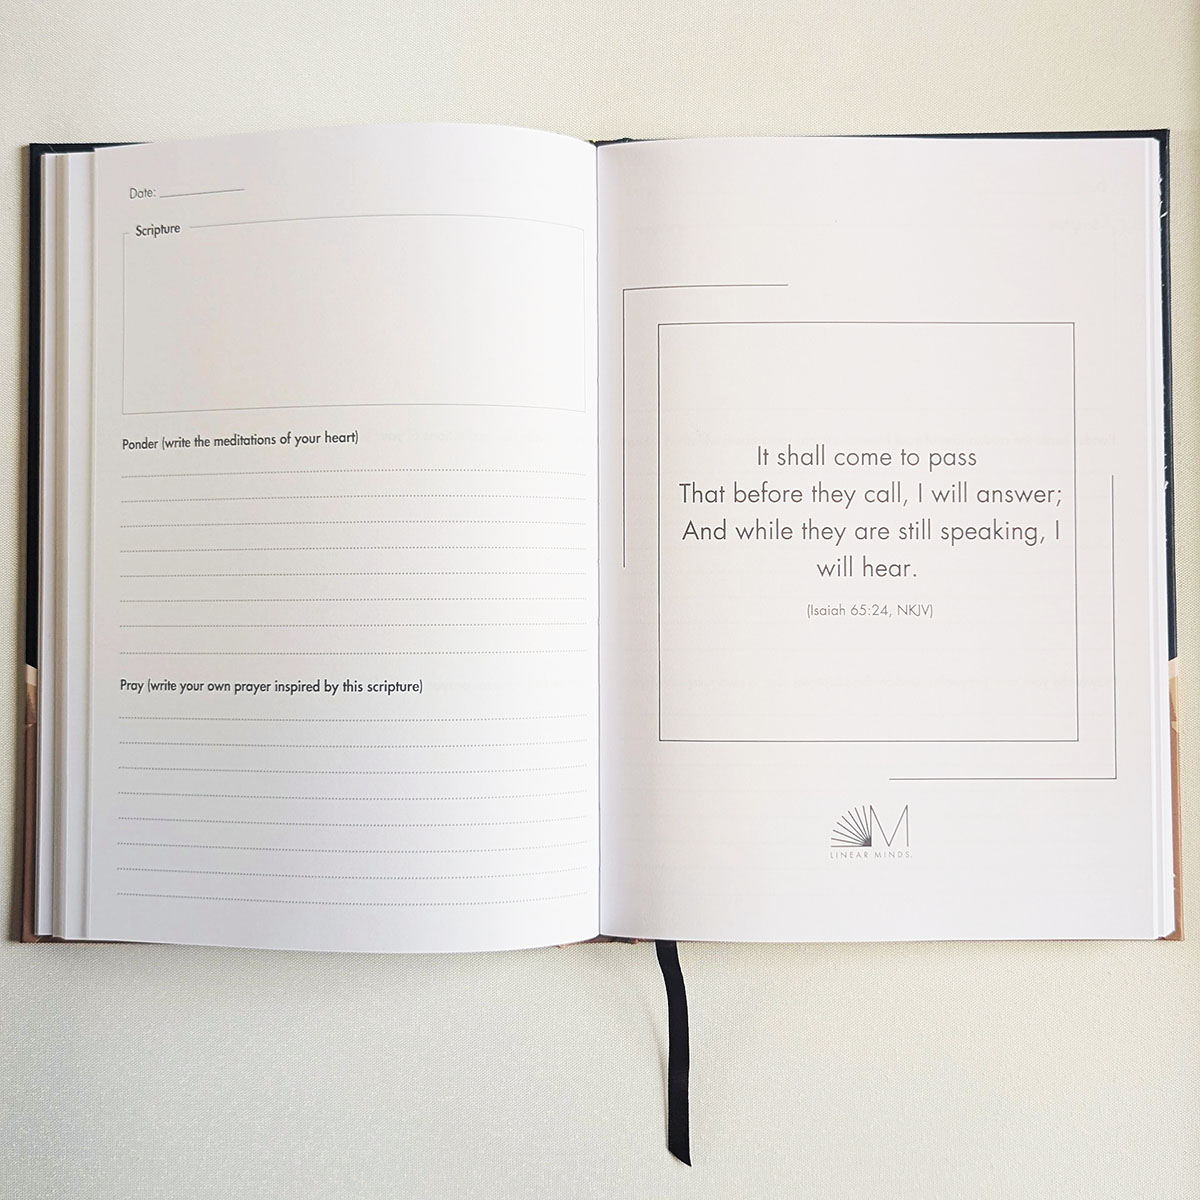 Date:
Scripture
Ponder (write the meditations of your heart)
Pray (write your own prayer inspired by this scripture)
It shall come to pass
That before they call, I will answer;
And while they are still speaking, I
will hear.
(Isaiah 65:24, NKJV)
M
LINEAR MINDS.